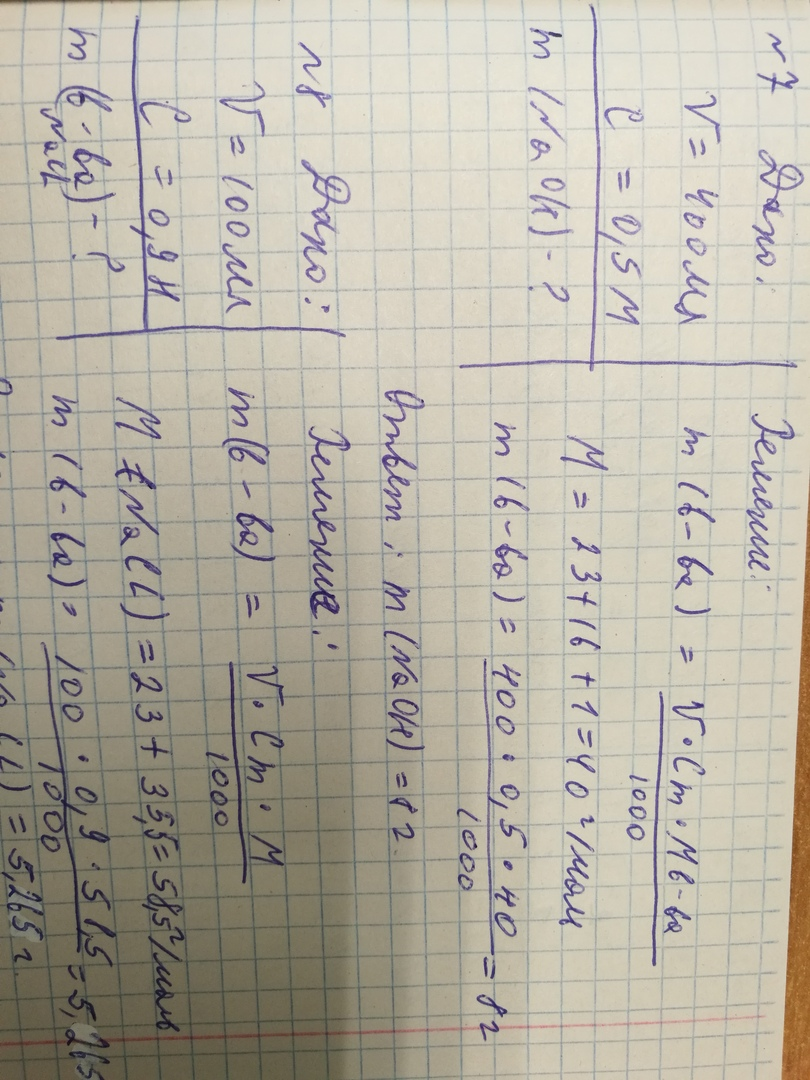 №7 Дано:
V = 400 мл
C = 0,5 М
m (NaOH) - ?
Решение:
m (в-ва) = V · Cm · Mв-ва
1000
M = 23 + 16 + 1 = 40 г/моль
m (в-ва) = 400 · 0,5 · 40 = 8 г
1000
Ответ: m (NaOH) = 8 г.
№8 Дано:
V = 100 мл
C = 0,9 Н
m (в-ва) - ?
NaCl
Решение:
m (в-ва) = V · Cm · M
1000
M (NaCl) = 23 + 35,5 = 58,5 г/моль
m (в-ва) = 100 · 0,9 · 58,5 = 5,265
1000
m (NaCl) = 5,265 г.